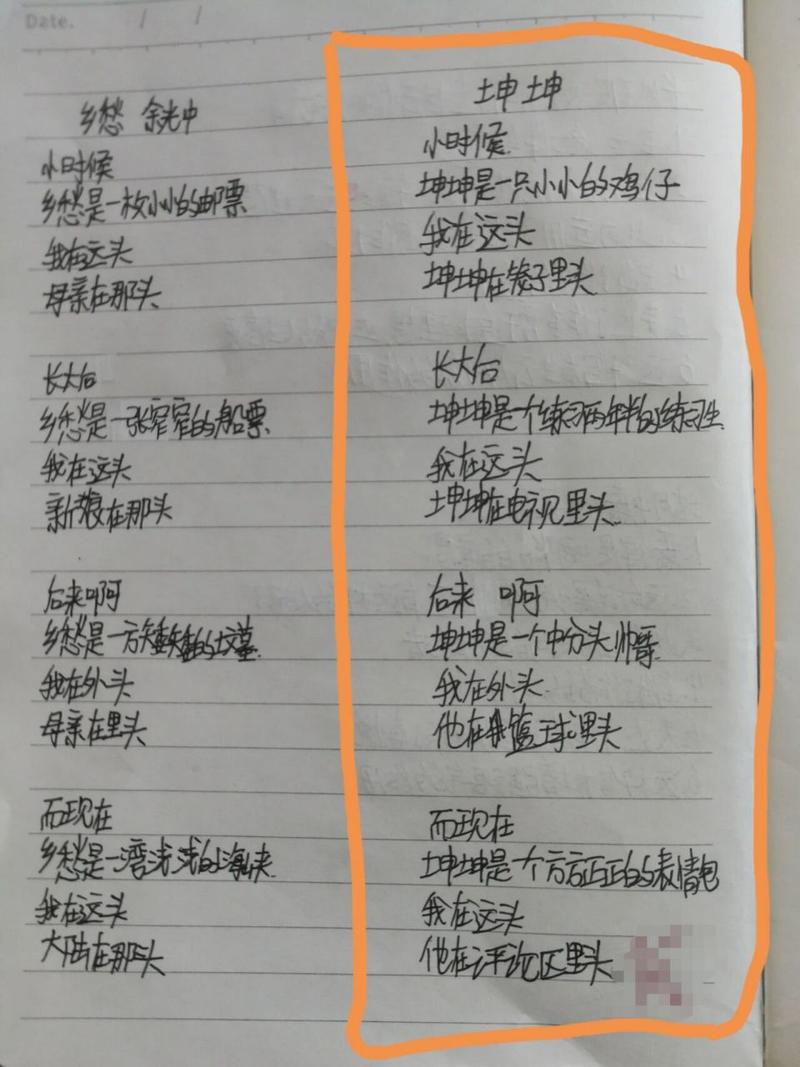 Date. / /
乡愁 余光中
小时候
乡愁是一枚小小的邮票
我在这头
母亲在那头
长大后
乡愁是一张窄窄的船票
我在这头
新娘在那头
后来啊
乡愁是一方矮矮的坟墓
我在外头
母亲在里头
而现在
乡愁是一湾浅浅的海峡
我在这头
大陆在那头
坤坤
小时候
坤坤是一只小小的鸡仔
我在这头
坤坤在笼子里头
长大后
坤坤是个练习两年半的练习生
我在这头
坤坤在电视里头
后来 啊
坤坤是一个中分头帅哥
我在外头
他在篮球里头
而现在
坤坤是一个方方正正的表情包
我在这头
他在评论区里头